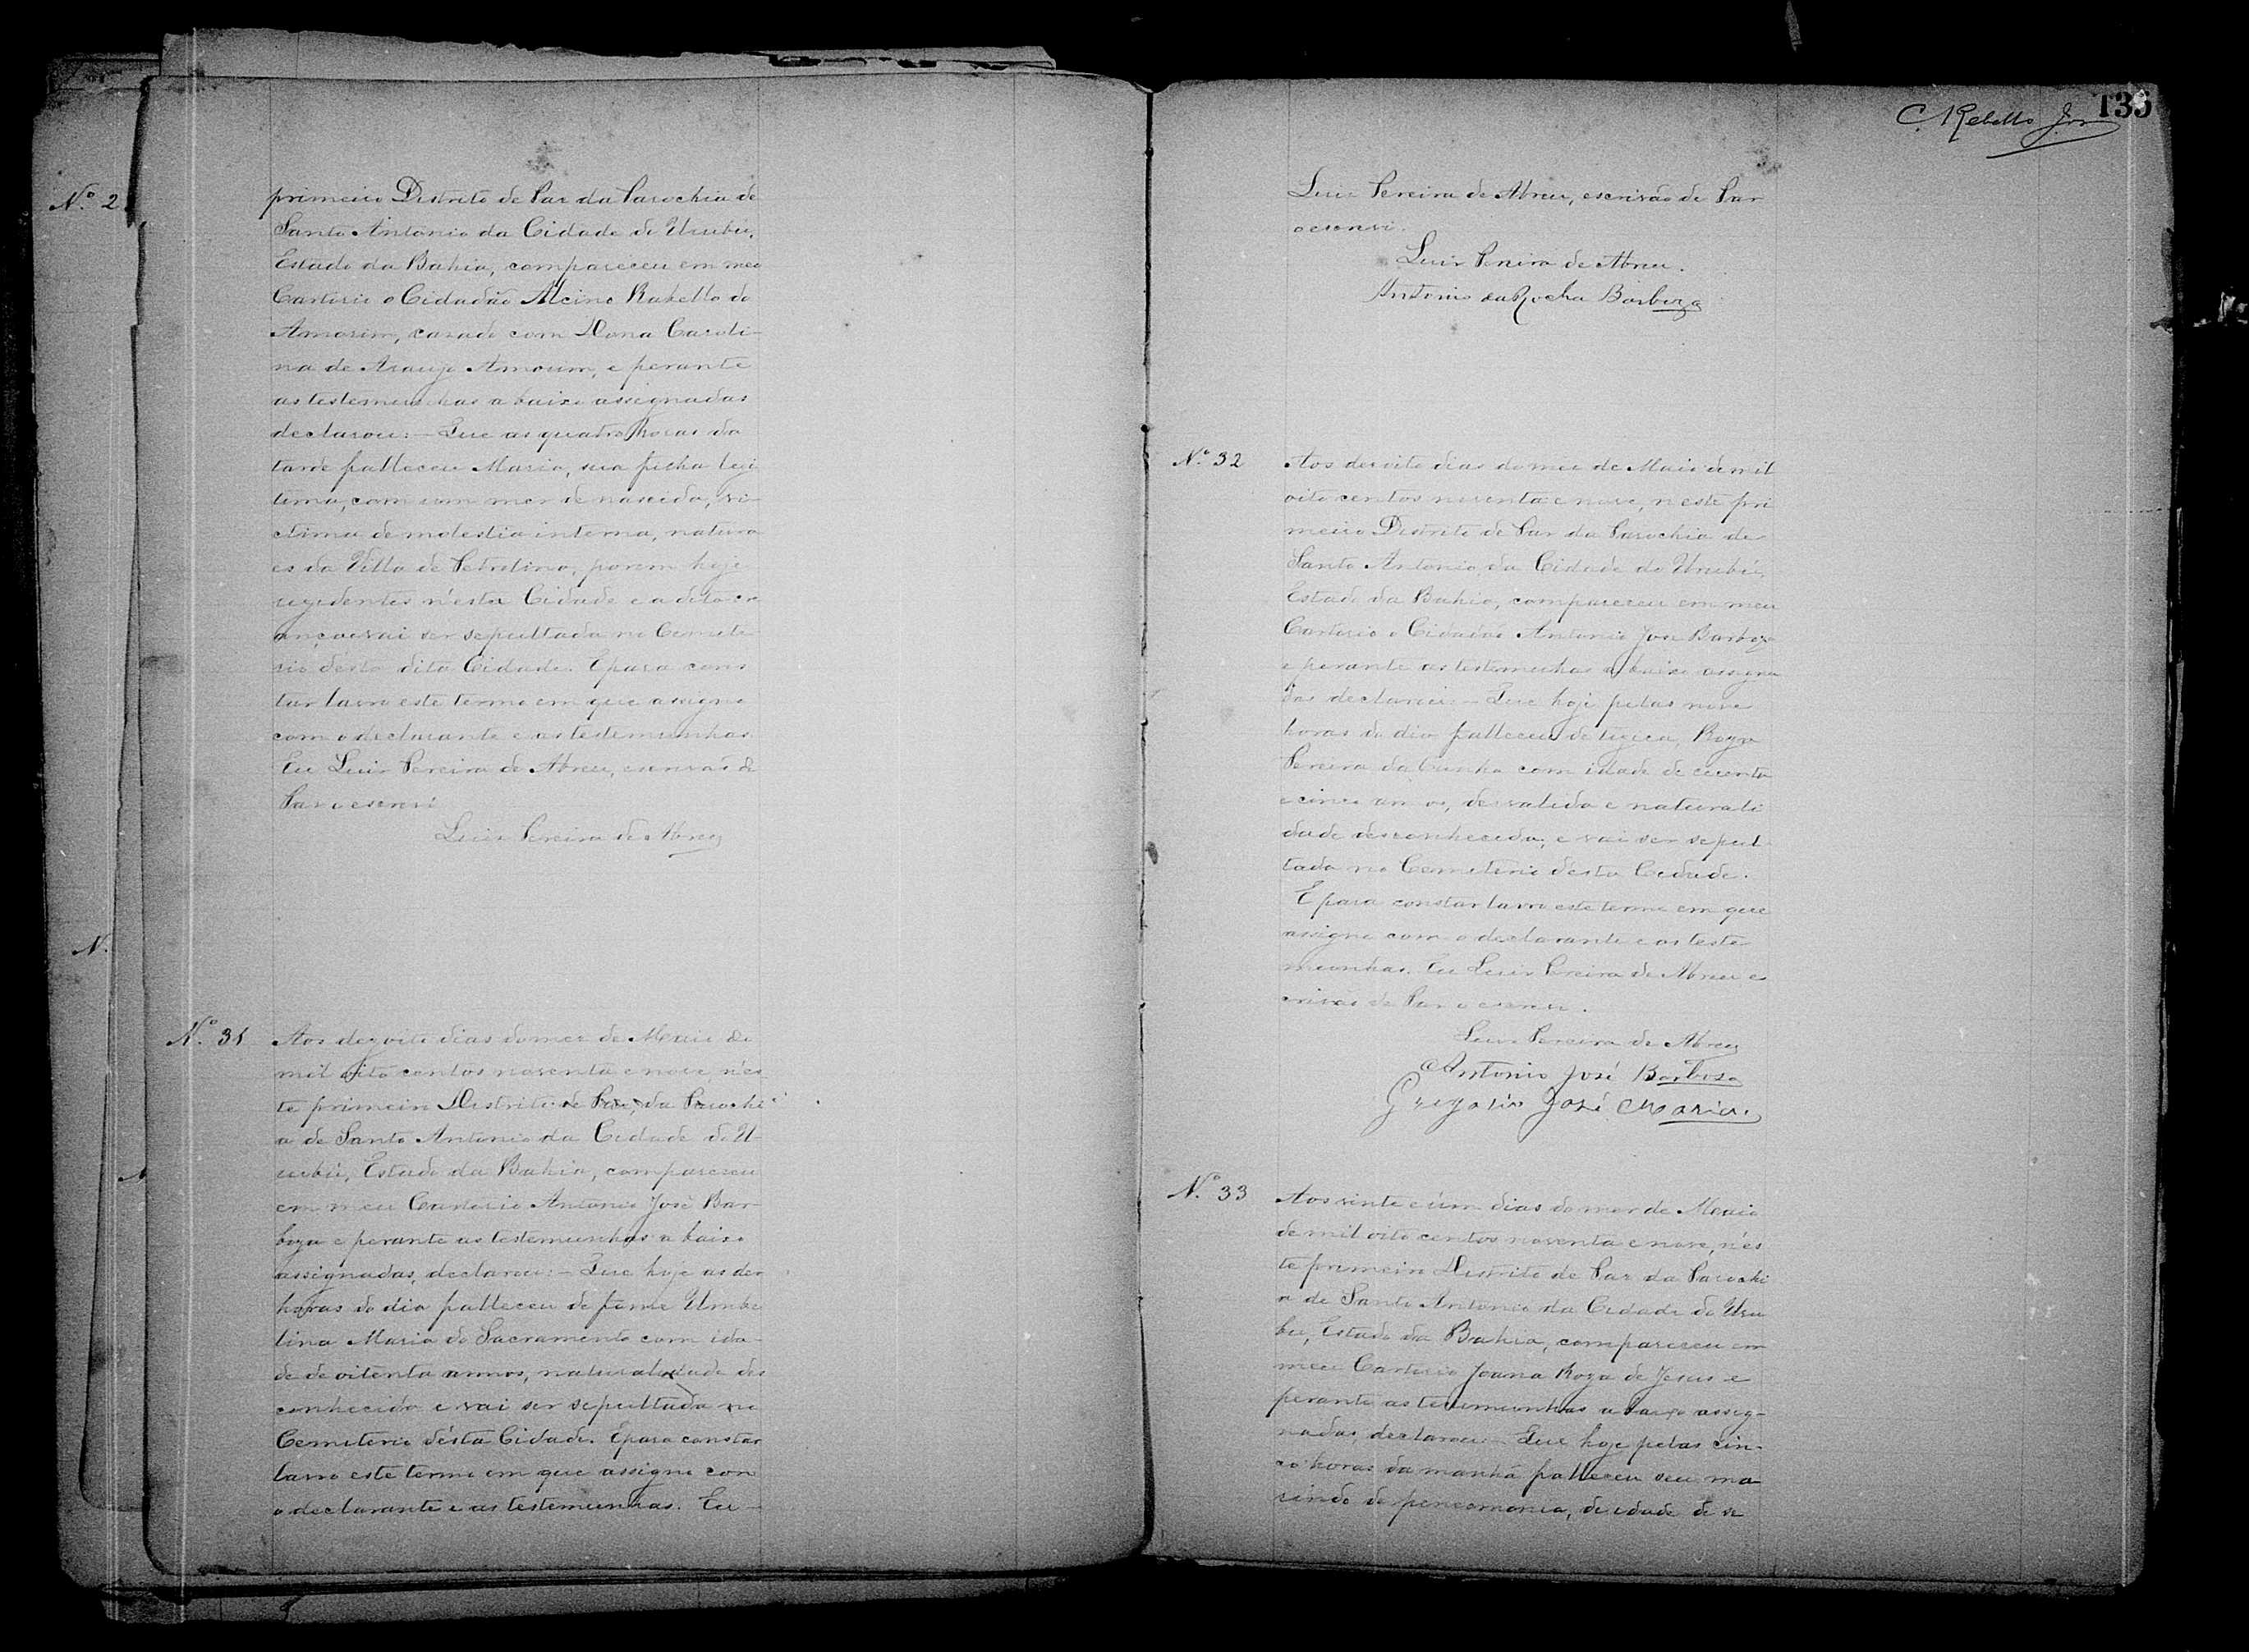 Nº 2
primeiro Distrito de Paz da Parochia de
Santo Antonio da Cidade do Urubú,
Estado da Bahia, compareceu em meo
Cartorio o Cidadão Alcino Rabello de
Amorim, casado com Dona Caroli-
na de Araujo Amorim, e perante
as testemunhas abaixo assignadas
declarou: – Que as quatro horas da
tarde falleceu Maria, sua filha legi
tima, com um mez de nascida, vi-
ctima de molestia interna, natura
es da Villa de Petrolina, porem hoje
rezidentes n'esta Cidade e a dita cre
ança vai ser sepultada no Cemite
rio désta dita Cidade. E para cons
tar lavro este termo em que assigno
com o declarante e as testemunhas.
Eu Luis Pereira de Abreu, escrivão de
Paz o escrevi
Luis Pereira de Abreu
N.
Nº 31
Aos dezoito dias do mez de Maio de
mil oito centos noventa e nove, n'es
te primeiro Districto de Paz, da Parochi
a de Santo Antonio da Cidade do U-
rubú, Estado da Bahia, compareceu
em meu Cartorio Antonio José Bar-
boza e perante as testemunhas abaixo
assignadas, declarou: – Que hoje as dez
horas do dia falleceu de fome Umbe
lina Maria do Sacramento com ida-
de de oitenta annos, naturalidade des
conhecida e vai ser sepultada no
Cemiterio désta Cidade. E para constar
lavro este termo em que assigno com
o declarante e as testemunhas. Eu –
C. Rebello Jor
135
Luis Pereira de Abreu, escrivão de Paz
o escrevi.
Luis Pereira de Abreu.
Antonio da Rocha Barboza
Nº 32
Aos dezoito dias do mez de Maio de mil
oito centos noventa e nove, n'este pri
meiro Distrito de Paz da Parochia de
Santo Antonio da Cidade do Urubú,
Estado da Bahia, compareceu em meu
Cartorio o Cidadão Antonio José Barboza
e perante as testemunhas abaixo assigna
das declarou: – Que hoje pelas nove
horas do dia falleceu de tizica, Roza
Pereira da Cunha com idade de cecenta
e cinco annos, desvalida e naturali
dade desconhecida, e vai ser sepul
tada no Cemiterio désta Cidade.
E para constar lavro este termo em que
assigno com o declarante e as teste
munhas. Eu Luis Pereira de Abreu es
crivão de Paz o escrevi.
Luis Pereira de Abreu
Antonio José Barbosa
Gregorio José Maria.
Nº 33
Aos vinte e úm dias do mez de Maio
de mil oito centos noventa e nove, n'es
te primeiro Distrito de Paz da Parochi
a de Santo Antonio da Cidade do Uru
bú, Estado da Bahia, compareceu em
meu Cartorio Joana Roza de Jesus e
perante as testemunhas abaixo assig-
nadas, declarou: – Que hoje pelas cin-
co horas da manhã falleceu seu ma
rido de peneomonia, de idade de se